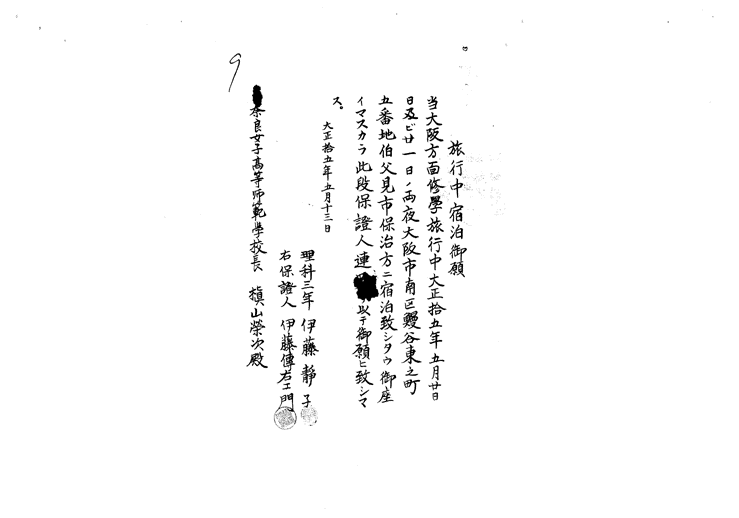 9
旅行中宿泊御願
当大阪方面修學旅行中大正拾五年五月廿日
日及ビ廿一日ノ両夜大阪市南区鰻谷東之町
五番地伯父見市保治方ニ宿泊致シタウ御座
イマスカラ此段保證人連 以テ御願ヒ致シマ
ス。
大正拾五年五月十三日
理科三年 伊藤静子
右保證人 伊藤傳右エ門
奈良女子高等師範學校長 槇山榮次殿